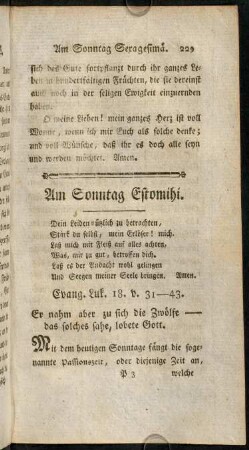 Am Sonntag Sexagesimä. 229
sich das Gute fortpflanzt durch ihr ganzes Le-
ben in hundertfältigen Früchten, die sie dereinst
auch noch in der seligen Ewigkeit einzuernden
haben.
O meine Lieben! mein ganzes Herz ist voll
Wonne, wenn ich mir Euch als solche denke;
und voll Wünsche, daß ihr es doch alle seyn
und werden möchtet. Amen.
Am Sonntag Estomihi.
Dein Leiden nützlich zu betrachten,
Stärk du selbst, mein Erlöser! mich.
Laß mich mit Fleiß auf alles achten,
Was, mir zu gut, betroffen dich.
Laß es der Andacht wohl gelingen
And Seegen meiner Seele bringen. Amen.
Evang. Luk. 18. v. 31—43.
Er nahm aber zu sich die Zwölfe —
das solches sahe, lobete Gott.
Mit dem heutigen Sonntage fängt die soge-
nannte Passionszeit, oder diejenige Zeit an,
P 3 welche